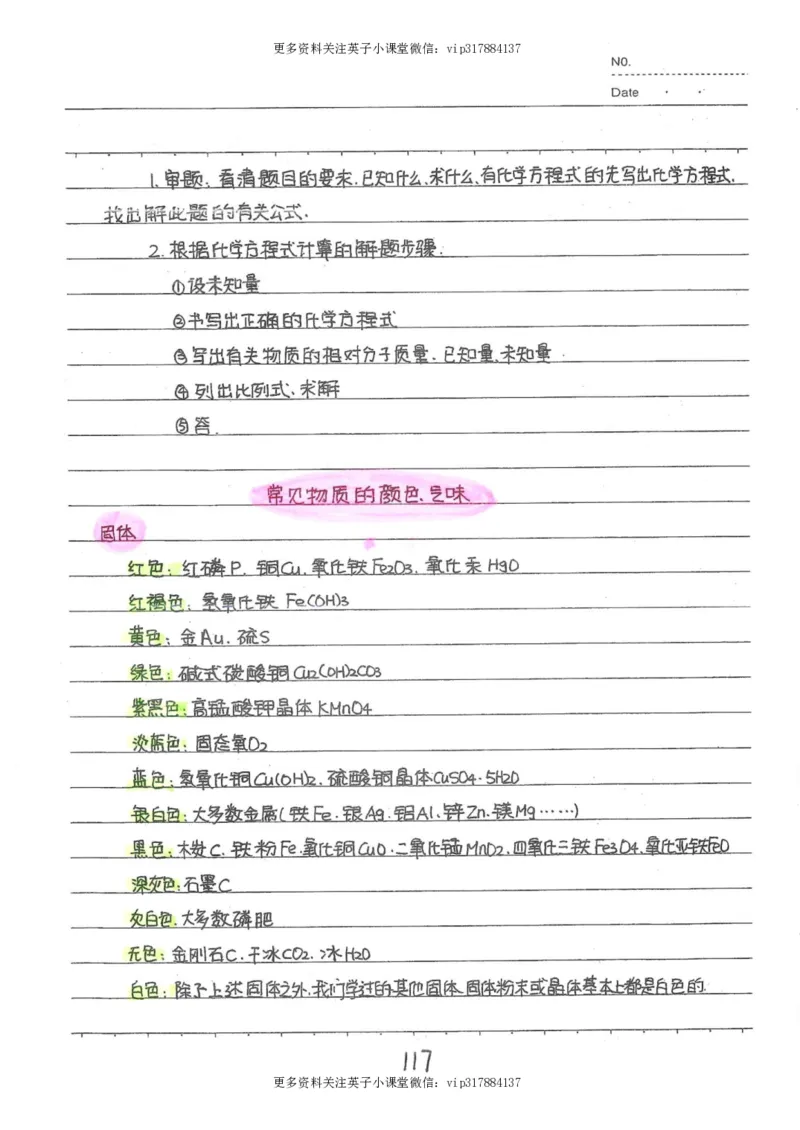 更多资料关注英子小课堂微信：vip317884137
NO.
Date
1.审题：看清题目的要求，已知什么，求什么，有化学方程式的先写出化学方程式，
找出解此题的有关公式．
2.根据化学方程式计算的解题步骤：
①设未知量
②书写出正确的化学方程式
③写出有关物质的相对分子质量、已知量、未知量
④列出比例式、求解
⑤答．
常见物质的颜色、气味
固体
红色：红磷P．铜Cu．氧化铁Fe2O3．氧化汞HgO
红褐色：氢氧化铁 Fe(OH)3
黄色：金Au．硫S
绿色：碱式碳酸铜Cu2(OH)2CO3
紫黑色：高锰酸钾晶体KMnO4
淡蓝色：固态氧O2
蓝色：氢氧化铜Cu(OH)2．硫酸铜晶体CuSO4·5H2O
银白色：大多数金属(铁Fe．银Ag．铝Al、锌Zn．镁Mg……)
黑色：木炭C．铁粉Fe．氧化铜CuO．二氧化锰MnO2．四氧化三铁Fe3O4．氧化亚铁FeO
深灰色：石墨C
灰白色．大多数磷肥
无色：金刚石C．干冰CO2．冰H2O
白色：除了上述固体之外，我们学过的其他固体、固体粉末或晶体基本上都是白色的．
117
更多资料关注英子小课堂微信：vip317884137